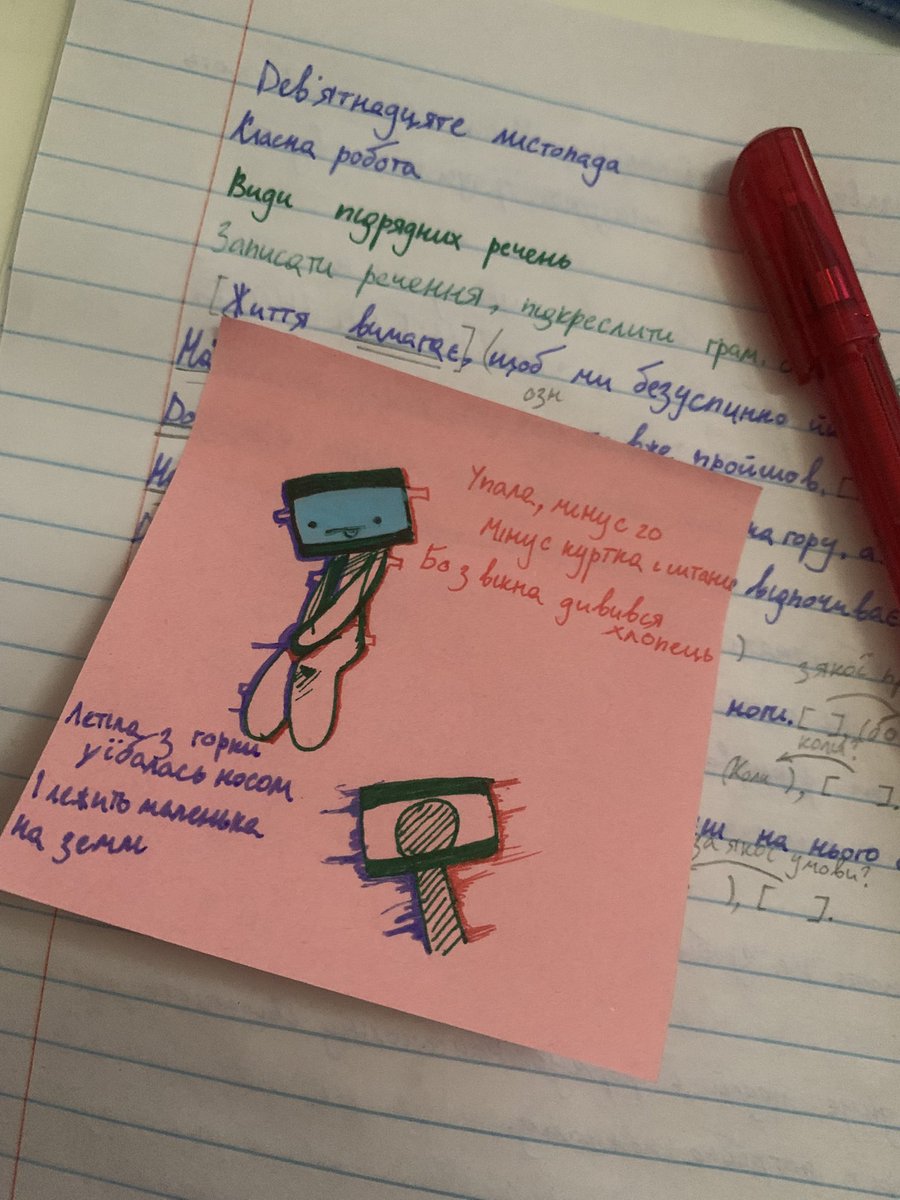 Дев'ятнадцяте листопада
Класна робота
Види підрядних речень
Записати речення, підкреслити грам.
[Життя вимагає], (щоб ми безуспинно
озн
вже пройшов, [
на гору, а
відпочиває
) з якої
ноги. [ ], (бо
коли?
(Коли ), [ ].
на нього
за якої умови?
), [ ].
Упала, мінус го
Мінус куртка і штанце
Бо з вікна дивився
хлопець
Летіла з горки
уїбалась носом
І лежить маленька
на землі